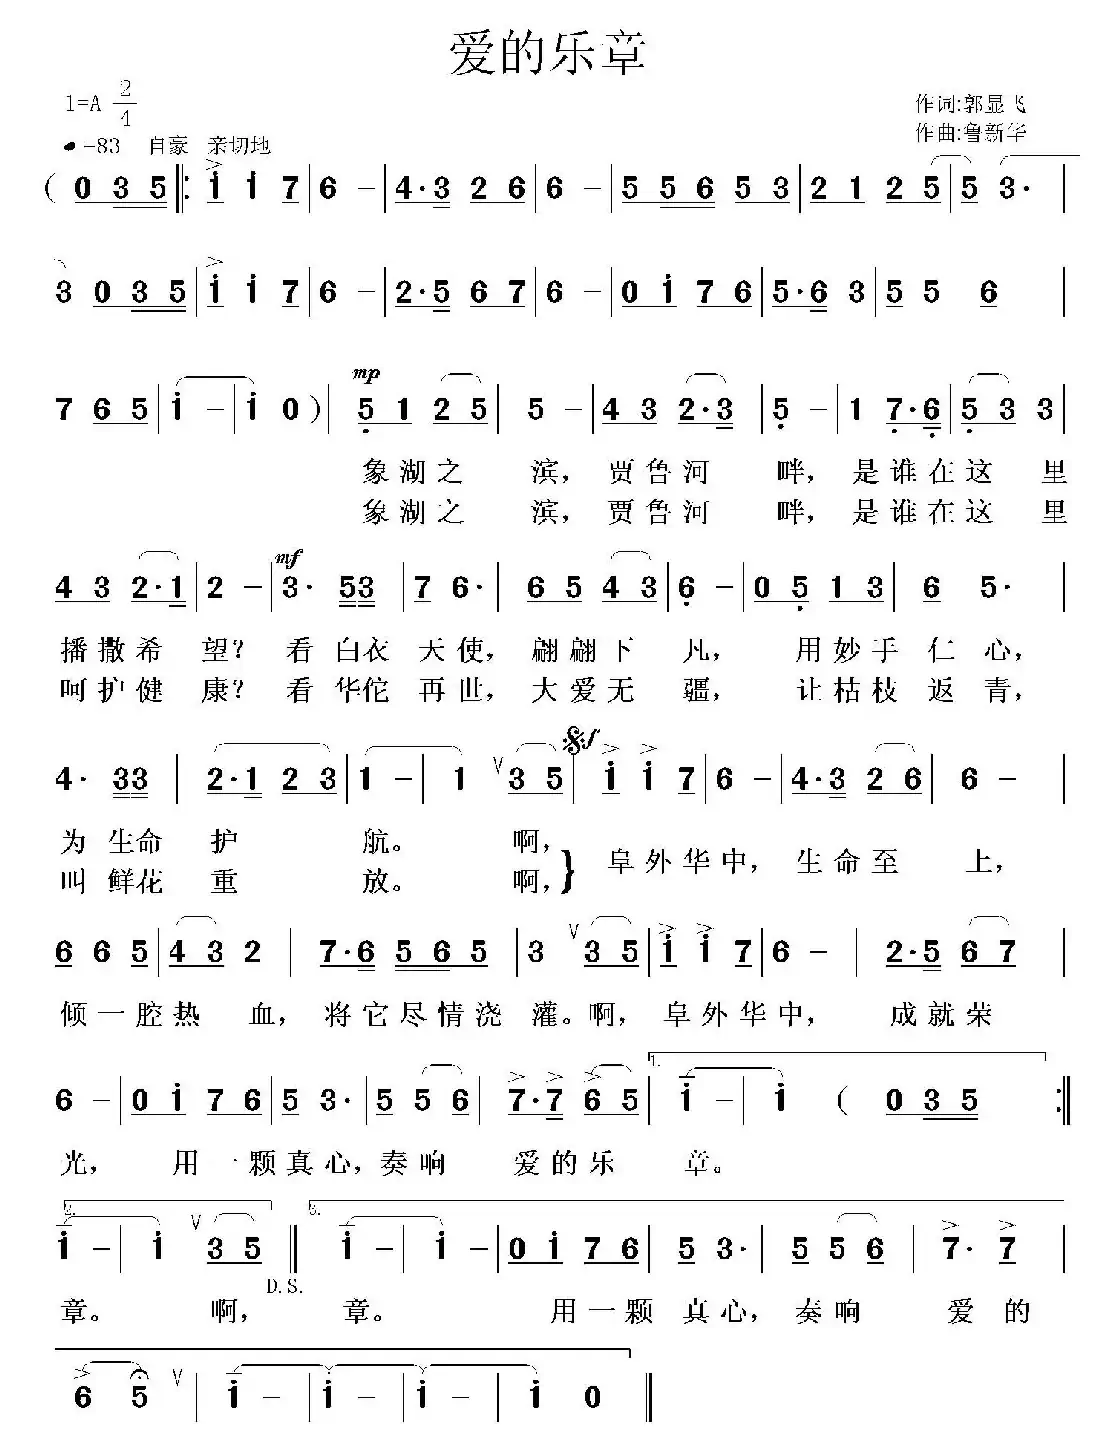 爱的乐章
1=A 2/4
作词:郭显飞
作曲:鲁新华
=83 自豪 亲切地
( 0 3 5 |: i i 7 | 6 - | 4·3 2 6 | 6 - | 5 5 6 5 3 | 2 1 2 5 | 5 3· |
3 0 3 5 | i i 7 | 6 - | 2·5 6 7 | 6 - | 0 i 7 6 | 5·6 3 | 5 5 6 |
mp
7 6 5 | i - | i 0 ) | 5 1 2 5 | 5 - | 4 3 2·3 | 5 - | 1 7·6 | 5 3 3 |
象湖之 滨, 贾鲁河 畔, 是谁在这 里
象湖之 滨, 贾鲁河 畔, 是谁在这 里
mf
4 3 2·1 | 2 - | 3· 5 3 | 7 6· | 6 5 4 3 | 6 - | 0 5 1 3 | 6 5· |
播撒希 望? 看 白衣 天使, 翩翩下 凡, 用妙手 仁 心,
呵护健 康? 看 华佗 再世, 大爱无 疆, 让枯枝 返 青,
f
4· 3 3 | 2·1 2 3 | 1 - | 1 V 3 5 | i i 7 | 6 - | 4·3 2 6 | 6 - |
为 生命 护 航。 啊,
叫 鲜花 重 放。 啊, } 阜外华中, 生命至 上,
6 6 5 | 4 3 2 | 7·6 5 6 5 | 3 V 3 5 | i i 7 | 6 - | 2·5 6 7 |
倾一腔热 血, 将它尽情浇 灌。啊, 阜外华中, 成就荣
1.
6 - | 0 i 7 6 | 5 3· | 5 5 6 | 7·7 6 5 | i - | i ( 0 3 5 :|
光, 用一颗真心,奏响 爱的乐 章。
2. 3.
i - | i V 3 5 || i - | i - | 0 i 7 6 | 5 3· | 5 5 6 | 7· 7 |
D.S.
章。 啊, 章。 用一颗 真心, 奏响 爱 的
6 5 V | i - | i - | i - | i 0 ||